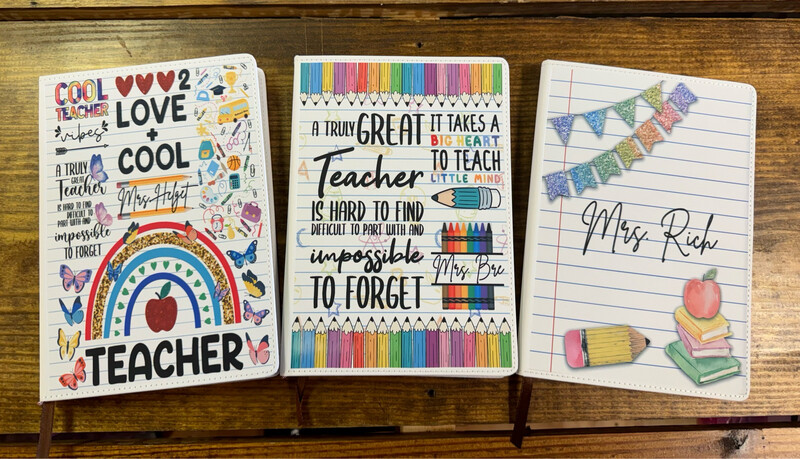 COOL
TEACHER
vibes
A TRULY
GREAT
Teacher
IS HARD TO FIND
DIFFICULT TO
PART WITH AND
impossible
TO FORGET
2
LOVE
+
COOL
Mrs. Helget
TEACHER
A TRULY GREAT
Teacher
IS HARD TO FIND
DIFFICULT TO PART WITH AND
impossible
TO FORGET
IT TAKES A
BIG HEART
TO TEACH
LITTLE MIND
Mrs. Bre
Mrs. Rich